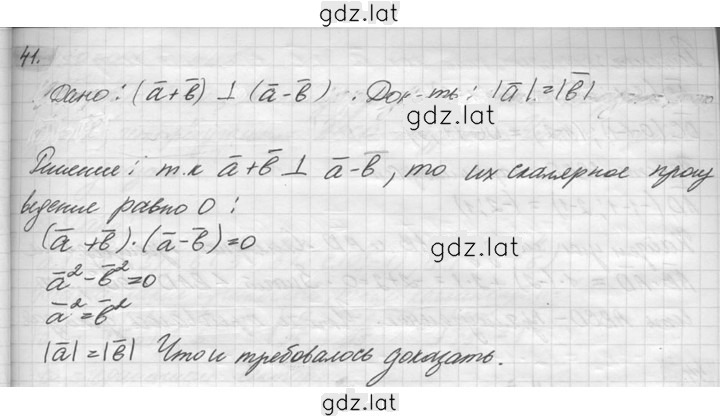 gdz.lat
41.
Дано: (a̅+b̅) ⊥ (a̅-b̅). Док-ть: |a̅|=|b̅|
gdz.lat
Решение: т.к a̅+b̅ ⊥ a̅-b̅, то их скалярное произ
ведение равно 0:
(a̅+b̅)·(a̅-b̅)=0
gdz.lat
a̅²-b̅²=0
a̅²=b̅²
|a̅|=|b̅| Что и требовалось доказать.
gdz.lat